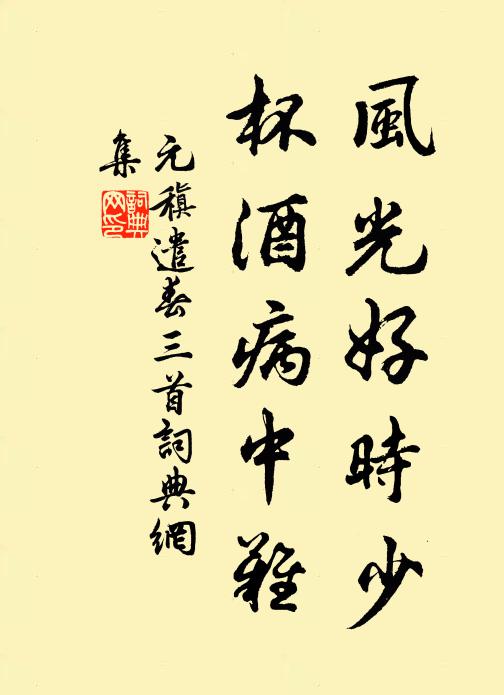 風光好時少
杯酒病中難
元稹遣春三首詞典網
集
詞典
网印